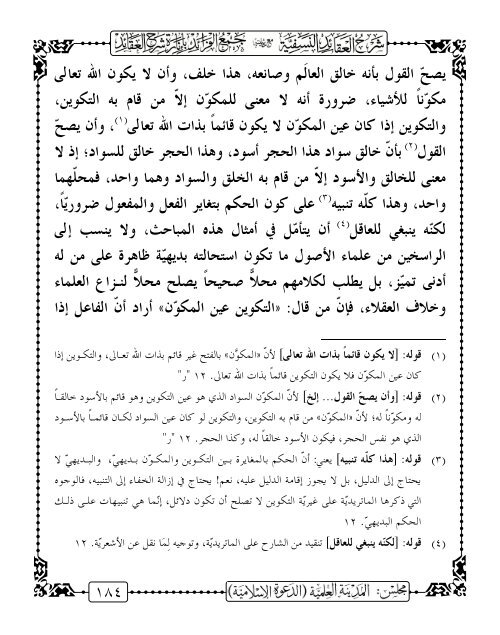 شرح العقائد النسفية مع جمع الفرائد بإنارة شرح العقائد
يصحّ القول بأنه خالق العالَم وصانعه، هذا خلف، وأن لا يكون الله تعالى
مكوّناً للأشياء، ضرورة أنه لا معنى للمكوّن إلاّ من قام به التكوين،
والتكوين إذا كان عين المكوّن لا يكون قائماً بذات الله تعالى(١)، وأن يصحّ
القول(٢) بأنّ خالق سواد هذا الحجر أسود، وهذا الحجر خالق للسواد؛ إذ لا
معنى للخالق والأسود إلاّ من قام به الخلق والسواد وهما واحد، فمحلّهما
واحد، وهذا كلّه تنبيه(٣) على كون الحكم بتغاير الفعل والمفعول ضروريًّا،
لكنّه ينبغي للعاقل(٤) أن يتأمّل في أمثال هذه المباحث، ولا ينسب إلى
الراسخين من علماء الأصول ما تكون استحالته بديهيّة ظاهرة على من له
أدنى تميّز، بل يطلب لكلامهم محلاًّ صحيحاً يصلح محلاًّ لنزاع العلماء
وخلاف العقلاء، فإنّ من قال: «التكوين عين المكوّن» أراد أنّ الفاعل إذا
(١) قوله: [لا يكون قائماً بذات الله تعالى] لأنّ «المكوَّن» بالفتح غير قائم بذات الله تعالى، والتكوين إذا
كان عين المكوّن فلا يكون التكوين قائماً بذات الله تعالى. ١٢ "ر"
(٢) قوله: [وأن يصحّ القول... إلخ] لأنّ المكوّن السواد الذي هو عين التكوين وهو قائم بالأسود خالقاً
له ومكوّناً له؛ لأنّ «المكوّن» من قام به التكوين، والتكوين لو كان عين السواد لكان قائماً بالأسود
الذي هو نفس الحجر، فيكون الأسود خالقاً له، وكذا الحجر. ١٢ "ر"
(٣) قوله: [هذا كلّه تنبيه] يعني: أنّ الحكم بالمغايرة بين التكوين والمكوّن بديهيّ، والبديهيّ لا
يحتاج إلى الدليل، بل لا يجوز إقامة الدليل عليه، نعم! يحتاج في إزالة الخفاء إلى التنبيه، فالوجوه
التي ذكرها الماتريديّة على غيريّة التكوين لا تصلح أن تكون دلائل، إنّما هي تنبيهات على ذلك
الحكم البديهيّ. ١٢
(٤) قوله: [لكنّه ينبغي للعاقل] تنقيد من الشارح على الماتريديّة، وتوجيه لِمَا نقل عن الأشعريّة. ١٢
مجلس: المدينة العلمية (الدعوة الإسلامية)
١٨٤